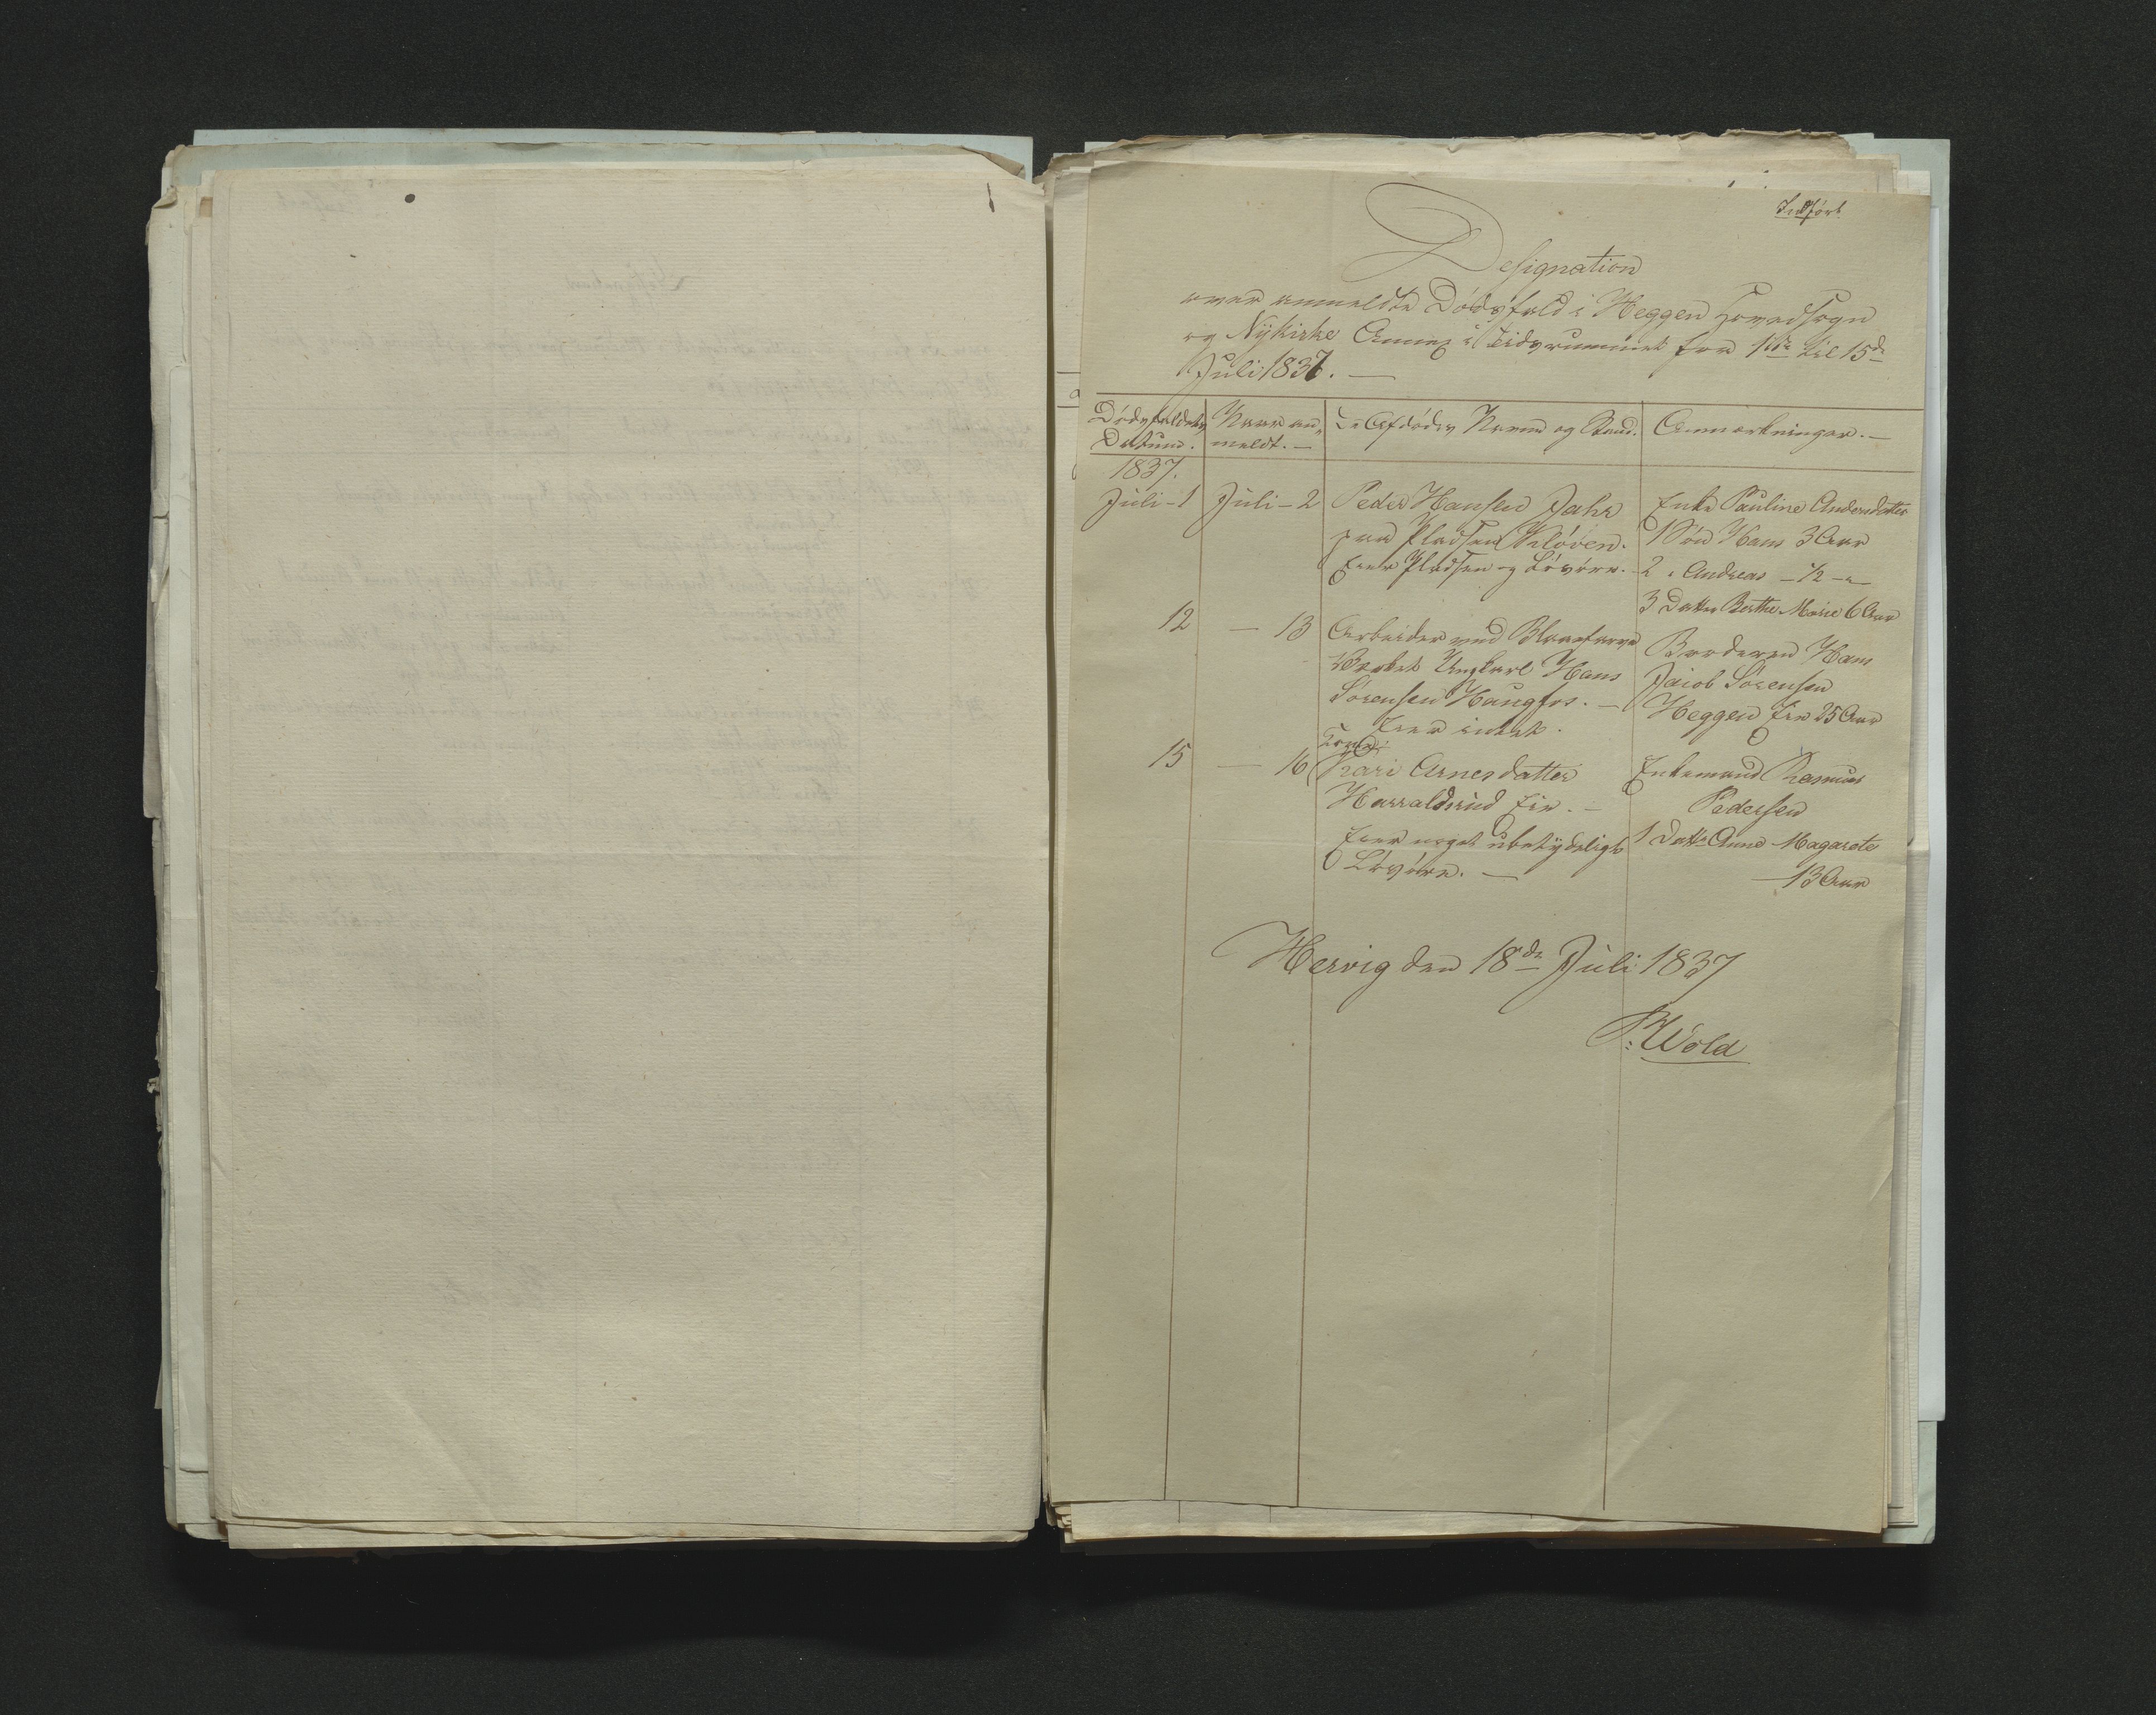 Indført
Designation
over anmeldte Dødsfald i Heggen Hovedsogn
og Nykirke Annex i Tidsrummet fra 1ste til 15de
Juli 1837. —
Dødsfaldets Datum.
Naar anmeldt. —
De Afdødes Navne og Stand.
Anmærkninger. —
1837.
Juli - 1
Juli - 2
Peder Hansen Jahr
paa Pladsen Kløven.
Eier Pladsen og Løsøre. —
Enke Pauline Andersdatter
1 Søn Hans 3 Aar
2 " Andreas - ½ - " -
3 Datter Berthe Marie 6 Aar
12
— 13
Arbeider ved Blaafarve
Værket Ungkarl Hans
Sørensen Haugfos. —
Eier intet.
Broderen Hans
Jacob Sørensen
Heggen Eie 25 Aar
15
— 16
Kone
Kari Arnesdatter
Harraldsrud Eie. —
Eier noget ubetydeligt
Løsøre. —
Enkemand Rasmus
Pedersen
1 Datter Anne Magarete
— 13 Aar
Hervig den 18de Juli 1837
P: Wold